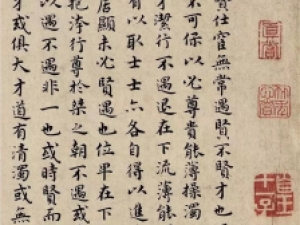 賢仕宦無常遇賢不賢才也
不可保以必尊貴能薄操濁
才潔行不遇退在下流薄能
有以取士士亦各自得以進
居顯未必賢遇也位卑在下
抱洿行尊於桀之朝不遇或
以遇不遇非一也或時賢而
才或俱大才道有清濁或無
真賞